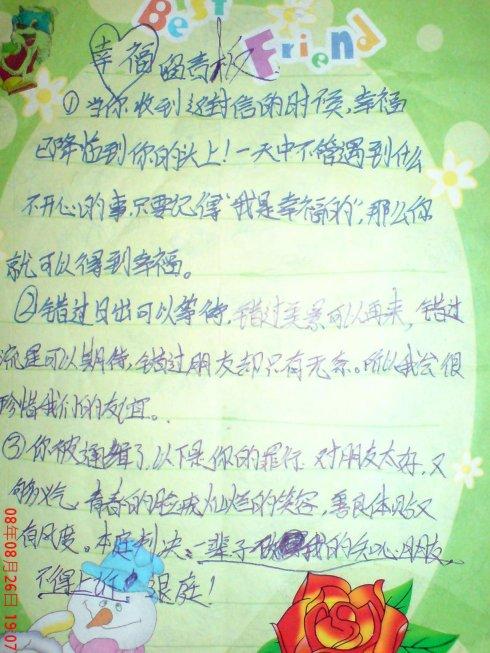 Best
Friend
幸福留言板
①当你收到这封信的时候,幸福
已降临到你的头上!一天中不管遇到什么
不开心的事,只要记得“我是幸福的”,那么你
就可以得到幸福。
②错过日出可以等待,错过美景可以再来,错过
流星可以期待,错过朋友却只有无奈。所以我会很
珍惜我们的友谊。
③你被通缉了,以下是你的罪行:对朋友太好,又
够义气,青春的脸庞,灿烂的笑容,善良体贴又
有风度。本庭判决:一辈子做我的知心朋友,
不得上诉!退庭!
08年08月26日 19:07